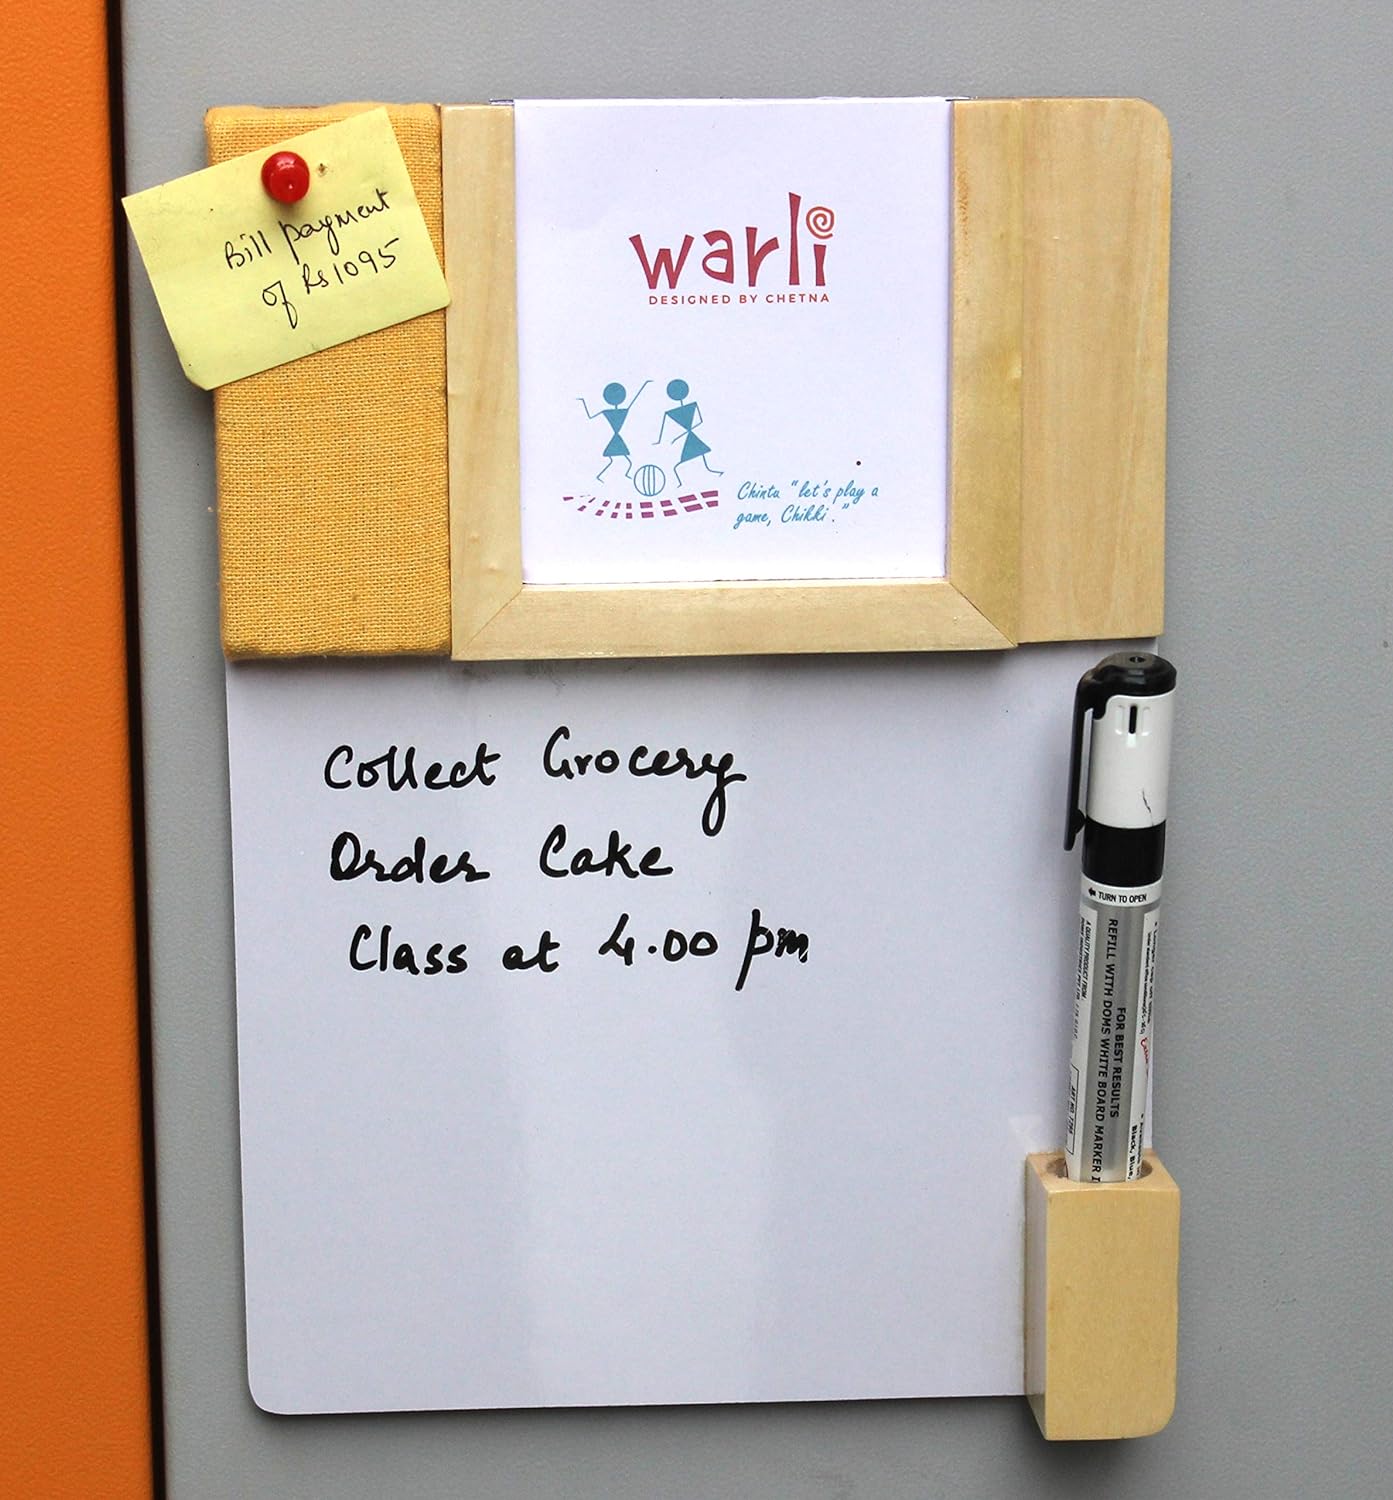 Bill payment
of Rs 1095
warli
DESIGNED BY CHETNA
Chintu "let's play a
game, Chikki."
Collect Grocery
Order Cake
Class at 4.00 pm
TURN TO OPEN
FOR BEST RESULTS
REFILL WITH DOMS WHITE BOARD MARKER I
A QUALITY PRODUCT FROM
Black, Blue,